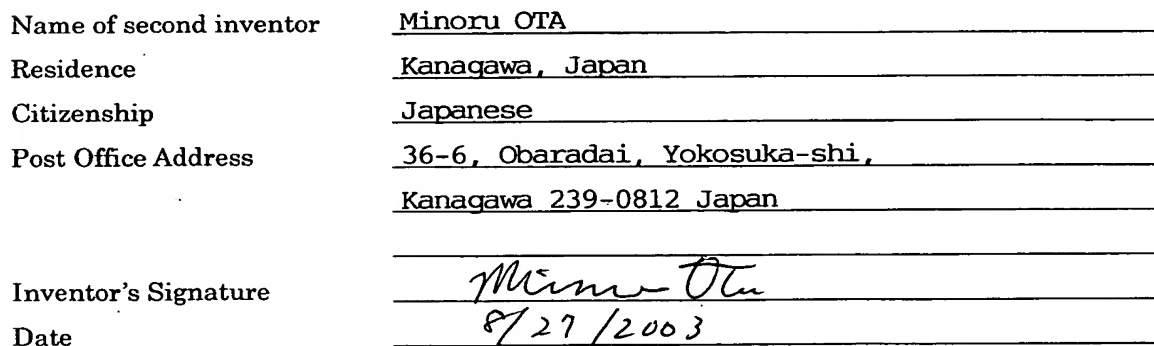 Name of second inventor Minoru OTA
Residence Kanagawa, Japan
Citizenship Japanese
Post Office Address 36-6, Obaradai, Yokosuka-shi,
Kanagawa 239-0812 Japan
Inventor's Signature Minoru Ota
Date 8/27/2003